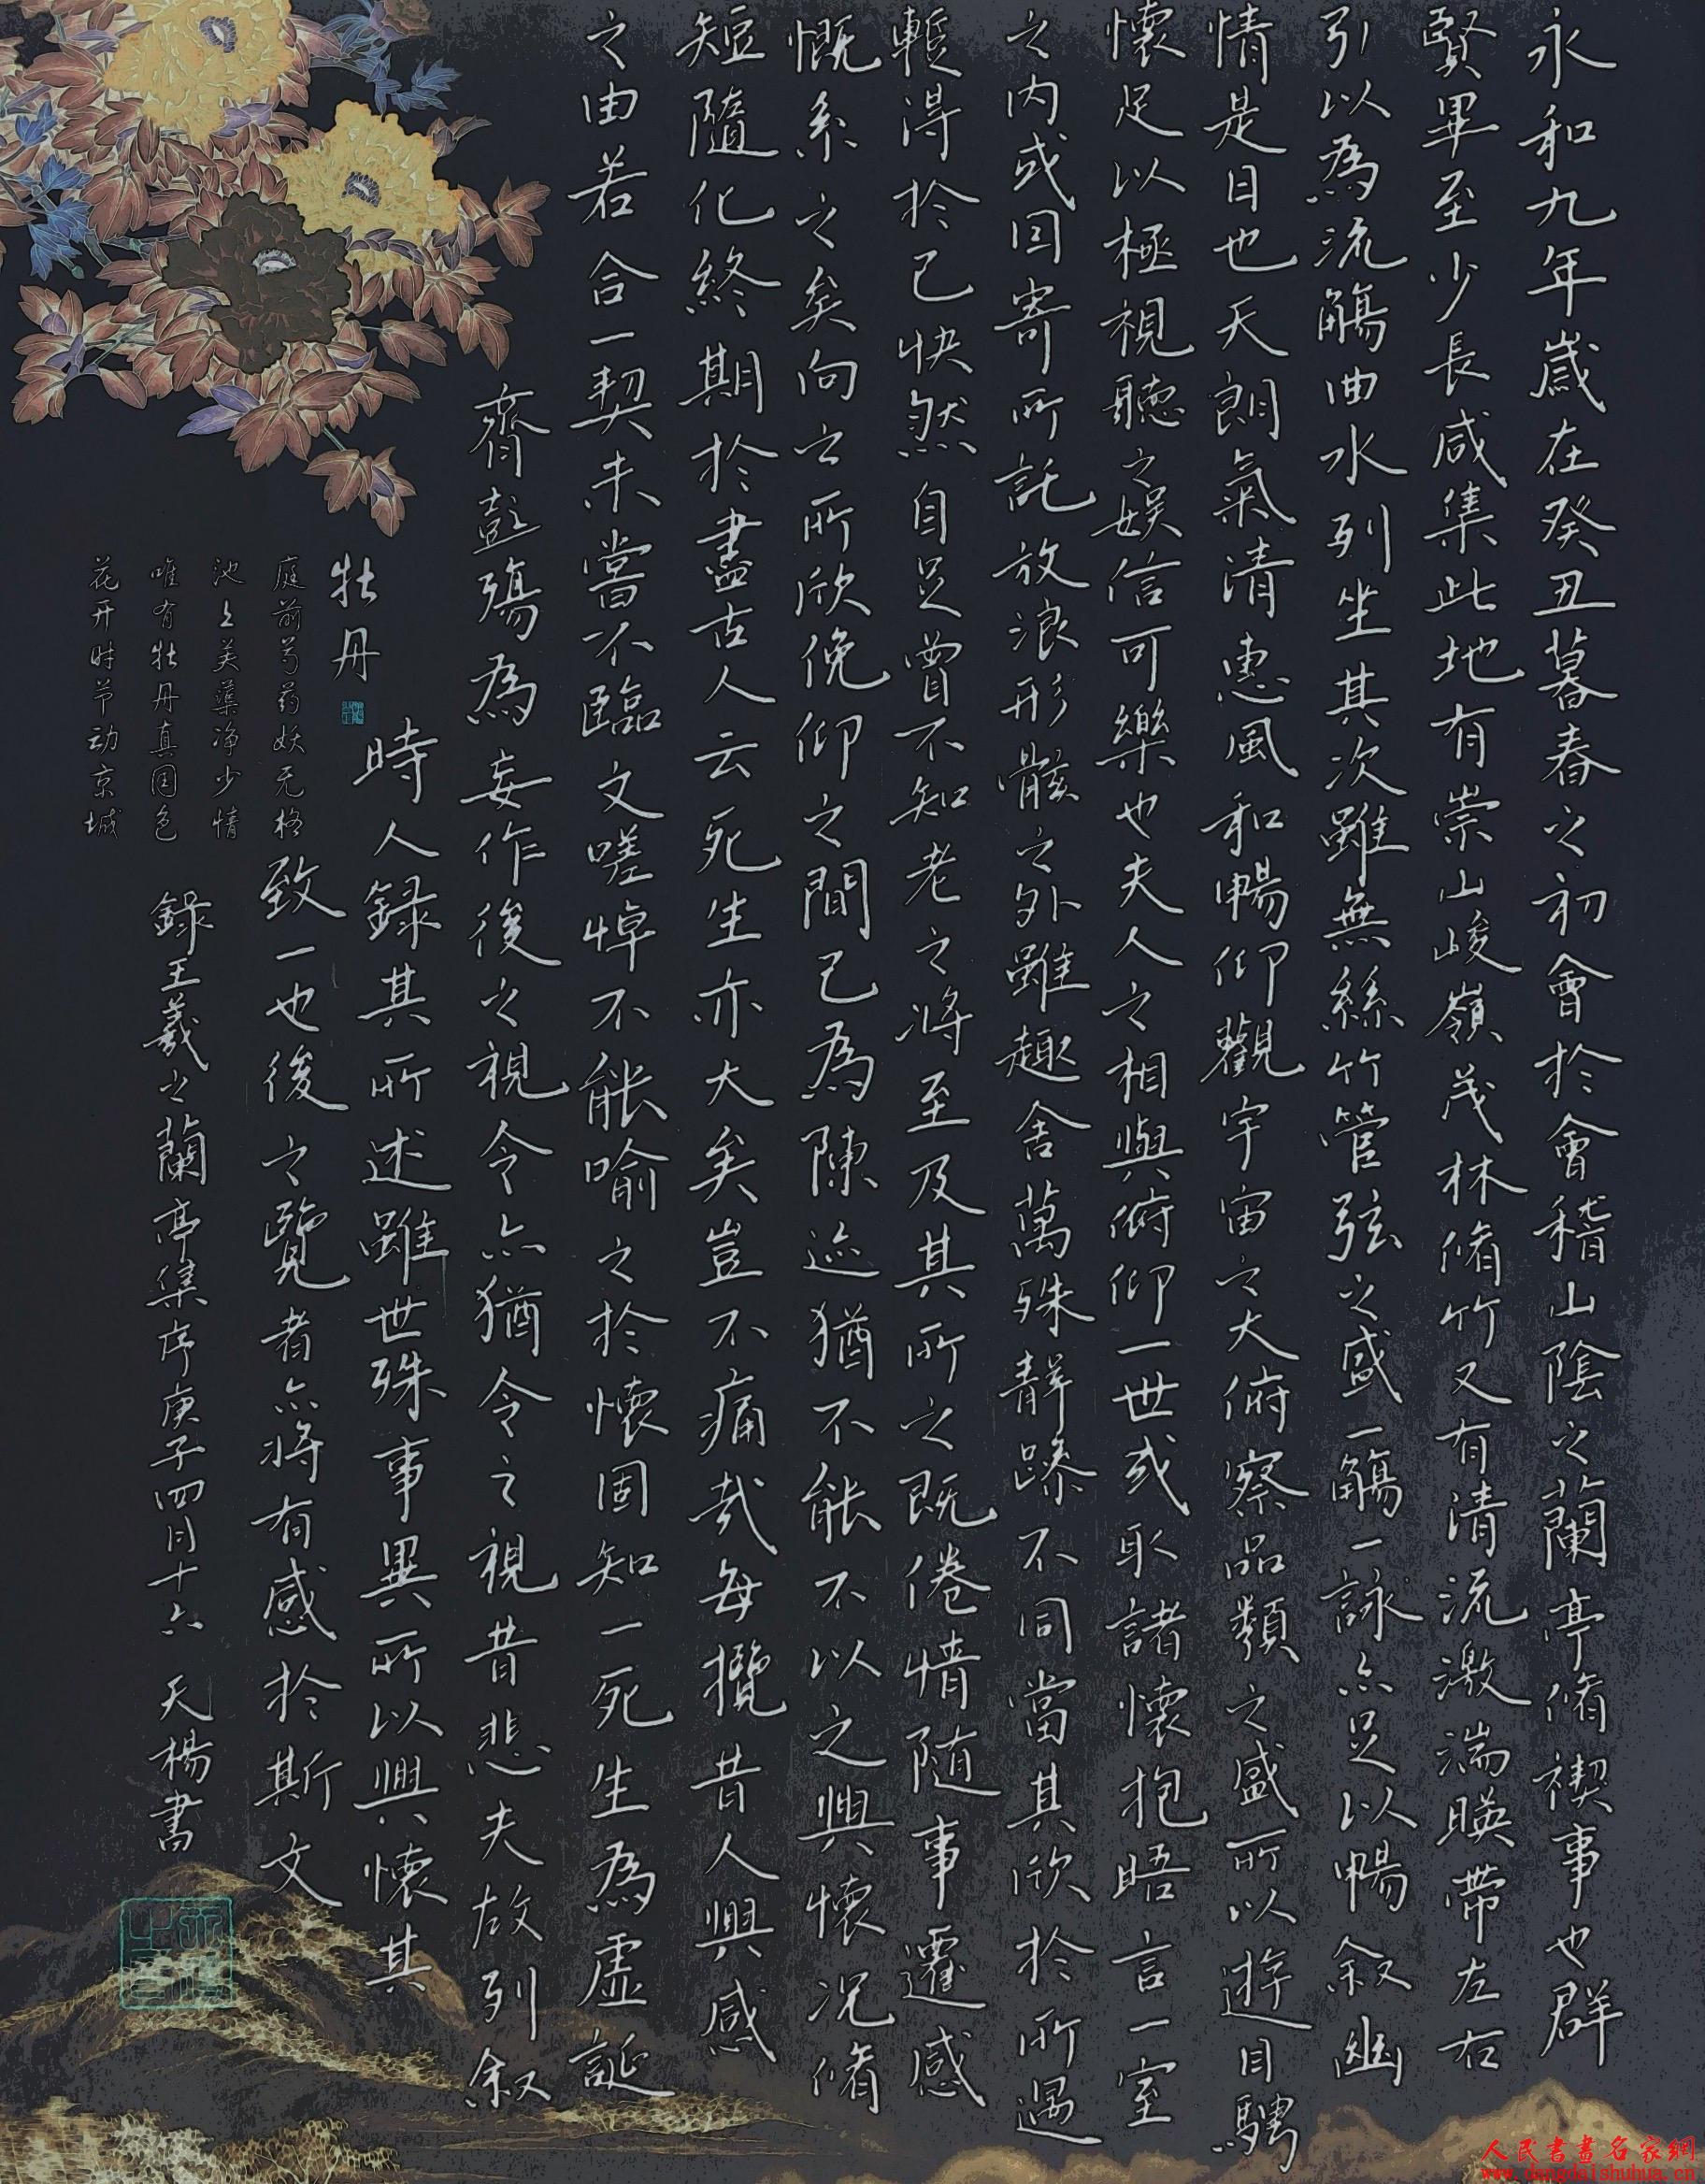 永和九年歲在癸丑暮春之初會於會稽山陰之蘭亭脩禊事也群
賢畢至少長咸集此地有崇山峻嶺茂林脩竹又有清流激湍暎帶左右
引以為流觴曲水列坐其次雖無絲竹管弦之盛一觴一詠亦足以暢敘幽
情是日也天朗氣清惠風和暢仰觀宇宙之大俯察品類之盛所以遊目騁
懷足以極視聽之娛信可樂也夫人之相與俯仰一世或取諸懷抱晤言一室
之內或因寄所託放浪形骸之外雖趣舍萬殊靜躁不同當其欣於所遇
暫得於己快然自足曾不知老之將至及其所之既倦情隨事遷感
慨系之矣向之所欣俛仰之間已為陳迹猶不能不以之興懷況脩
短隨化終期於盡古人云死生亦大矣豈不痛哉每攬昔人興感
之由若合一契未嘗不臨文嗟悼不能喻之於懷固知一死生為虛誕
齊彭殤為妄作後之視今亦猶今之視昔悲夫故列敘
時人錄其所述雖世殊事異所以興懷其
致一也後之覽者亦將有感於斯文
錄王羲之蘭亭集序庚子四月十六 天楊書
牡丹
庭前芍药妖无格
池上芙蕖净少情
唯有牡丹真国色
花开时节动京城
人民書畫名家網
www.dangdaishuhua.cn